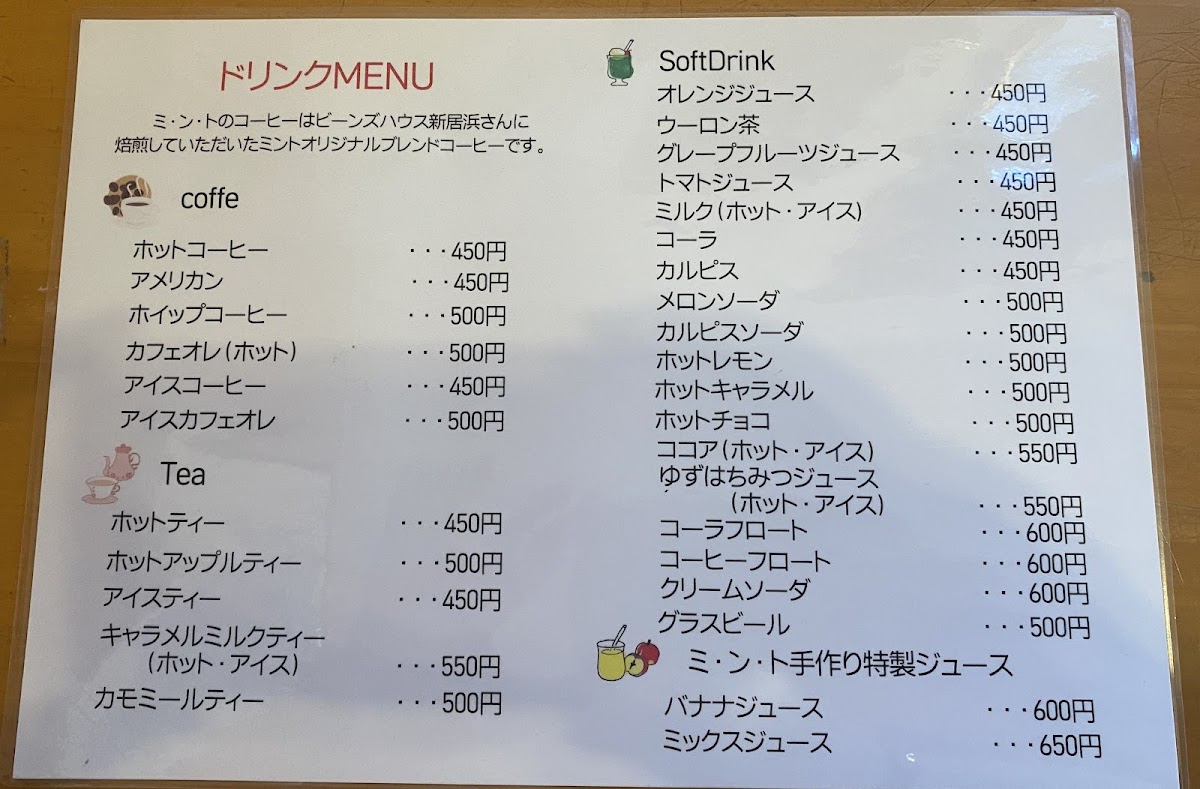 ドリンクMENU
ミ・ン・トのコーヒーはビーンズハウス新居浜さんに
焙煎していただいたミントオリジナルブレンドコーヒーです。
coffe
ホットコーヒー ・・・450円
アメリカン ・・・450円
ホイップコーヒー ・・・500円
カフェオレ(ホット) ・・・500円
アイスコーヒー ・・・450円
アイスカフェオレ ・・・500円
Tea
ホットティー ・・・450円
ホットアップルティー ・・・500円
アイスティー ・・・450円
キャラメルミルクティー
(ホット・アイス) ・・・550円
カモミールティー ・・・500円
SoftDrink
オレンジジュース ・・・450円
ウーロン茶 ・・・450円
グレープフルーツジュース ・・・450円
トマトジュース ・・・450円
ミルク(ホット・アイス) ・・・450円
コーラ ・・・450円
カルピス ・・・450円
メロンソーダ ・・・500円
カルピスソーダ ・・・500円
ホットレモン ・・・500円
ホットキャラメル ・・・500円
ホットチョコ ・・・500円
ココア(ホット・アイス) ・・・550円
ゆずはちみつジュース
(ホット・アイス) ・・・550円
コーラフロート ・・・600円
コーヒーフロート ・・・600円
クリームソーダ ・・・600円
グラスビール ・・・500円
ミ・ン・ト手作り特製ジュース
バナナジュース ・・・600円
ミックスジュース ・・・650円